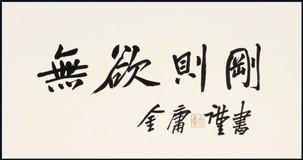 無欲則剛
金庸謹書